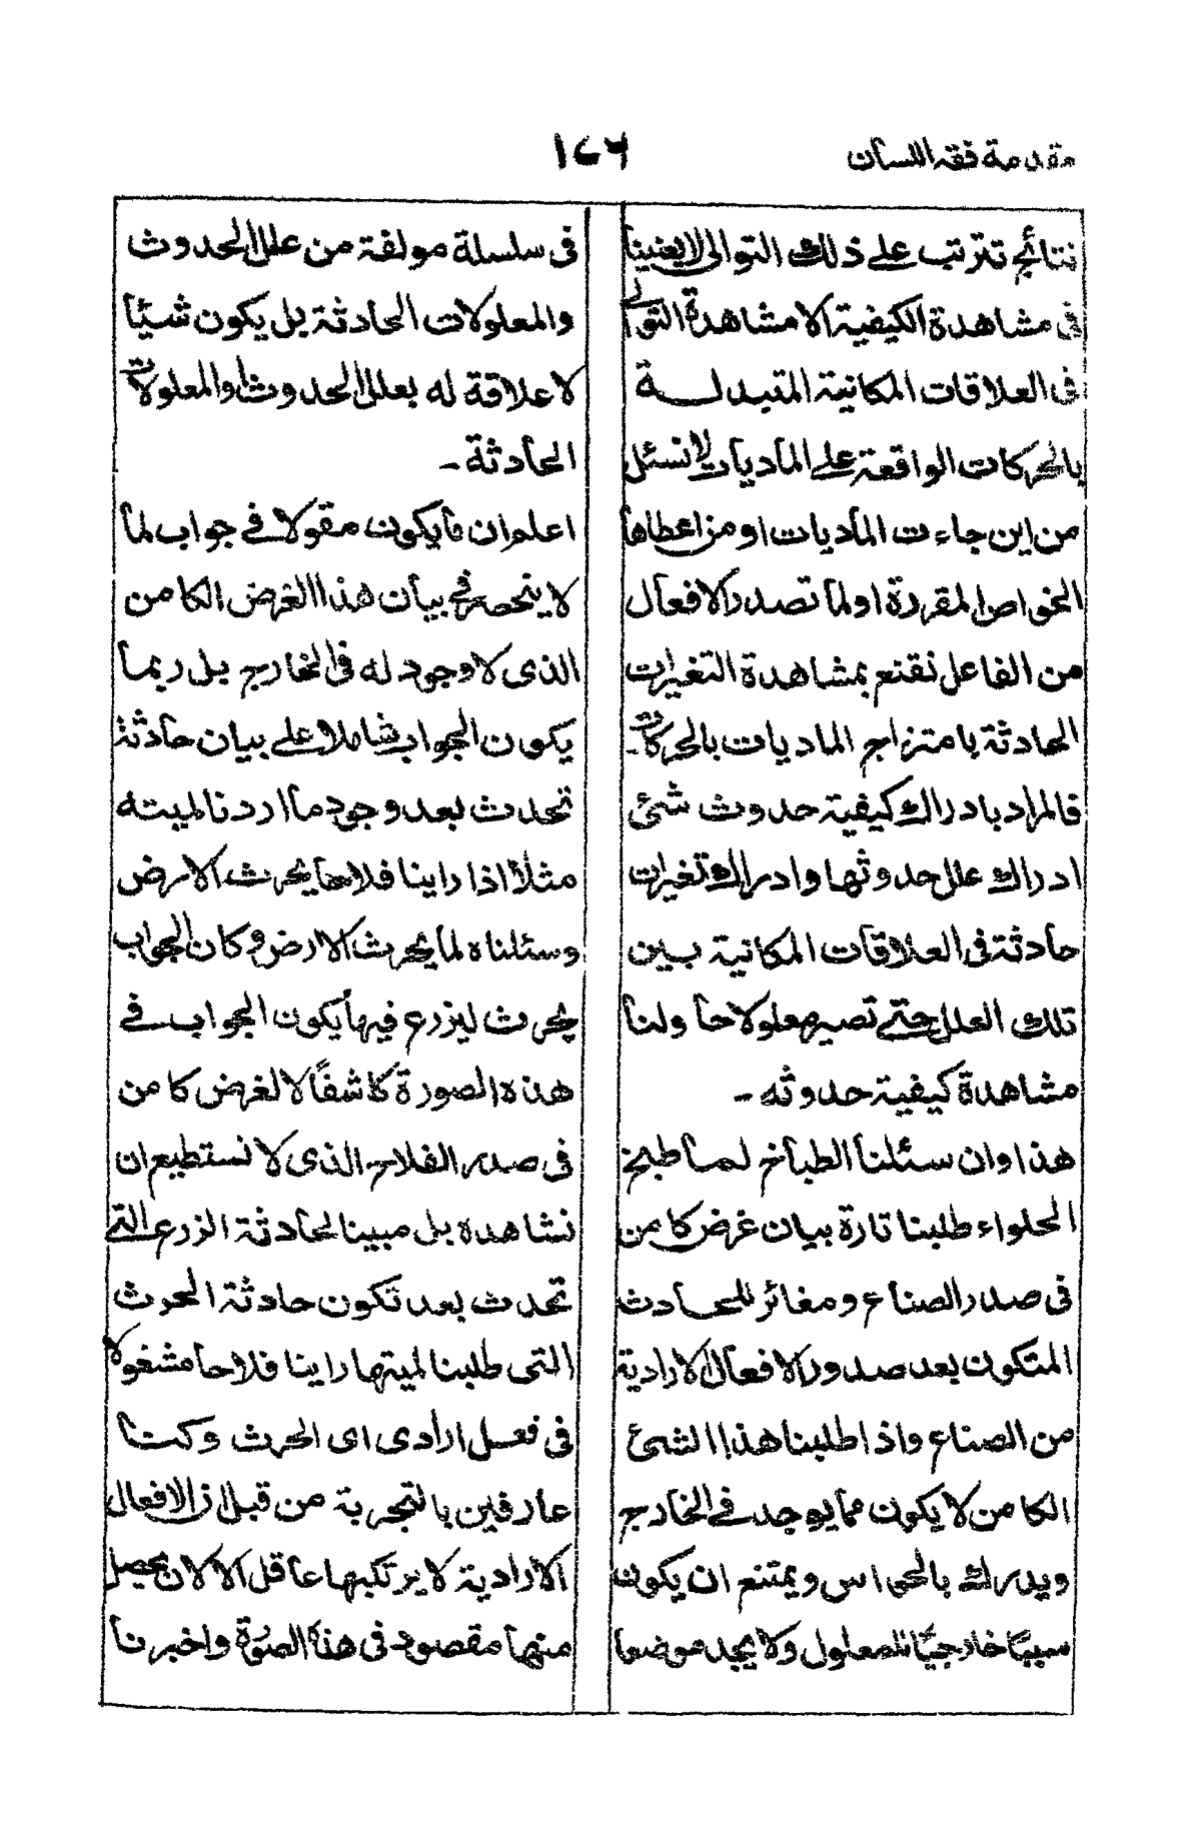 مقدمة فقه اللسان
١٢٦
نتائج تترتب على ذلك التوالى لا يغنينا
فى مشاهدة الكيفية الا مشاهدة التوالى
فى العلاقات المكانية المتبدلة
بالحركات الواقعة على الماديات لا نسئل
من اين جاءت الماديات او من اعطاها
الخواص المقررة او لما تصدر الافعال
من الفاعل نقنع بمشاهدة التغيرات
الحادثة بامتزاج الماديات بالحركات۔
فالمراد بادراك كيفية حدوث شئ
ادراك علل حدوثها وادراك تغيرات
حادثة فى العلاقات المكانية بين
تلك العلل حتى تصير معلولا حا ولنا
مشاهدة كيفية حدوثه ۔
هذا وان سئلنا الطباخ لما طبخ
الحلواء طلبنا تارة بيان غرض كامن
فى صدر الصناع ومغائر للحادث
المتكون بعد صدور الافعال الارادية
من الصناع واذا طلبنا هذا الشئ
الكامن لا يكون مما يوجد فى الخارج
ويدرك بالحواس ويمتنع ان يكون
سببًا خارجيًا للمعلول ولا يجد موضعا
فى سلسلة مولفة من علل الحدوث
والمعلولات الحادثة بل يكون شيئا
لا علاقة له بعلل الحدوث او المعلولات
الحادثة ۔
اعلم ان ما يكون مقولا فى جواب لما
لا ينحصر فى بيان هذا الغرض الكامن
الذى لا وجود له فى الخارج بل ربما
يكون الجواب شاملا على بيان حادثة
تحدث بعد وجود ما اردنا لميته
مثلاً اذا راينا فلاحا يحرث الارض
وسئلناه لما يحرث الارض وكان الجواب
يحرث ليزرع فيها يكون الجواب فى
هذه الصورة كاشفًا لا لغرض كامن
فى صدر الفلاح الذى لا نستطيع ان
نشاهده بل مبينا لحادثة الزرع التى
تحدث بعد تكون حادثة الحرث
التى طلبنا لميتها راينا فلاحا مشغولا
فى فعل ارادى اى الحرث وكنا
عارفين بالتجربة من قبل ان الافعال
الارادية لا يرتكبها عاقل الا لان يحصل
منها مقصود فى هذه الصورة واخبرنا